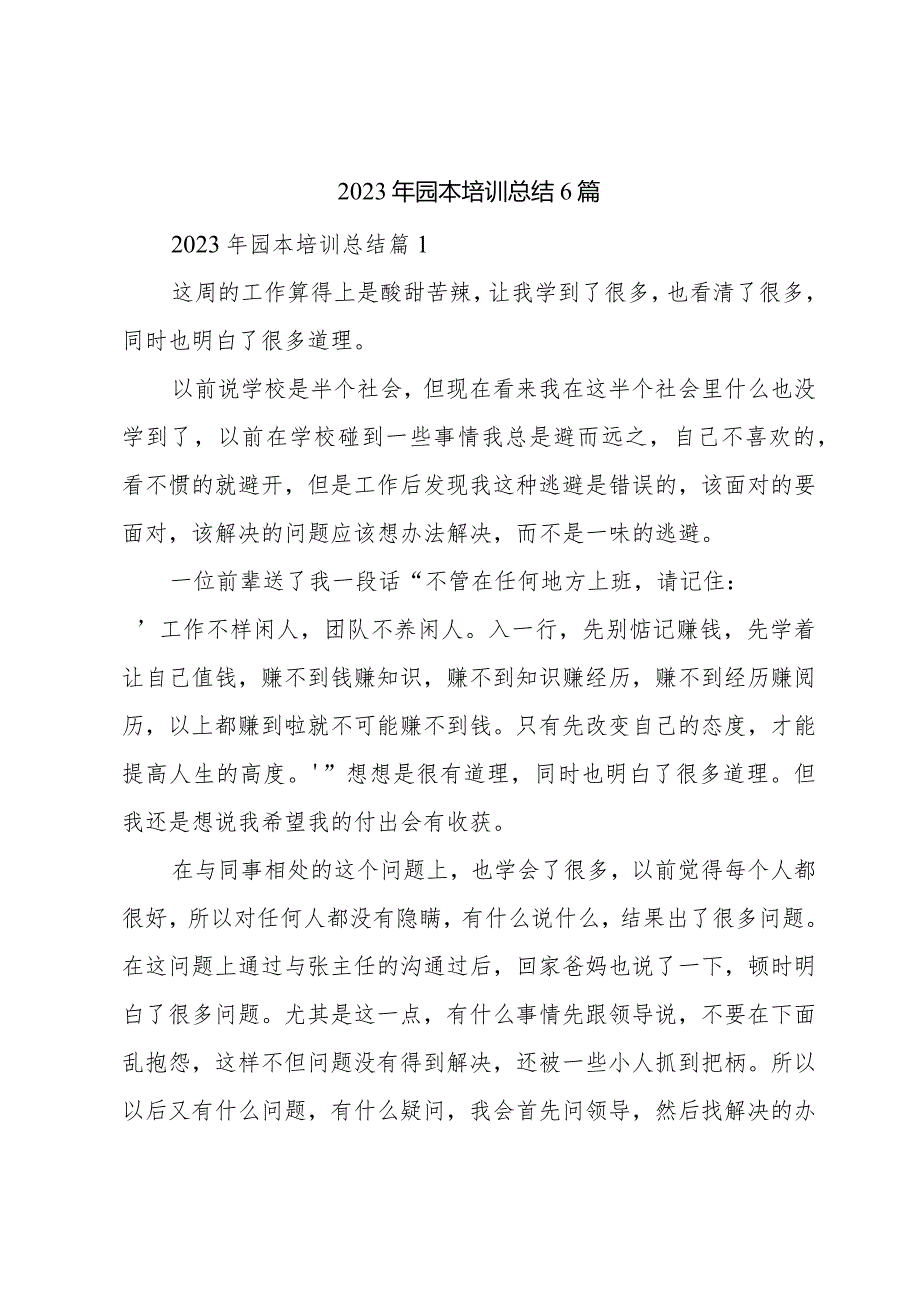 2023年园本培训总结6篇
2023 年园本培训总结篇 1
这周的工作算得上是酸甜苦辣，让我学到了很多，也看清了很多，
同时也明白了很多道理。
以前说学校是半个社会，但现在看来我在这半个社会里什么也没
学到了，以前在学校碰到一些事情我总是避而远之，自己不喜欢的，
看不惯的就避开，但是工作后发现我这种逃避是错误的，该面对的要
面对，该解决的问题应该想办法解决，而不是一味的逃避。
一位前辈送了我一段话“不管在任何地方上班，请记住：
’工作不样闲人，团队不养闲人。入一行，先别惦记赚钱，先学着
让自己值钱，赚不到钱赚知识，赚不到知识赚经历，赚不到经历赚阅
历，以上都赚到啦就不可能赚不到钱。只有先改变自己的态度，才能
提高人生的高度。'”想想是很有道理，同时也明白了很多道理。但
我还是想说我希望我的付出会有收获。
在与同事相处的这个问题上，也学会了很多，以前觉得每个人都
很好，所以对任何人都没有隐瞒，有什么说什么，结果出了很多问题。
在这问题上通过与张主任的沟通过后，回家爸妈也说了一下，顿时明
白了很多问题。尤其是这一点，有什么事情先跟领导说，不要在下面
乱抱怨，这样不但问题没有得到解决，还被一些小人抓到把柄。所以
以后又有什么问题，有什么疑问，我会首先问领导，然后找解决的办